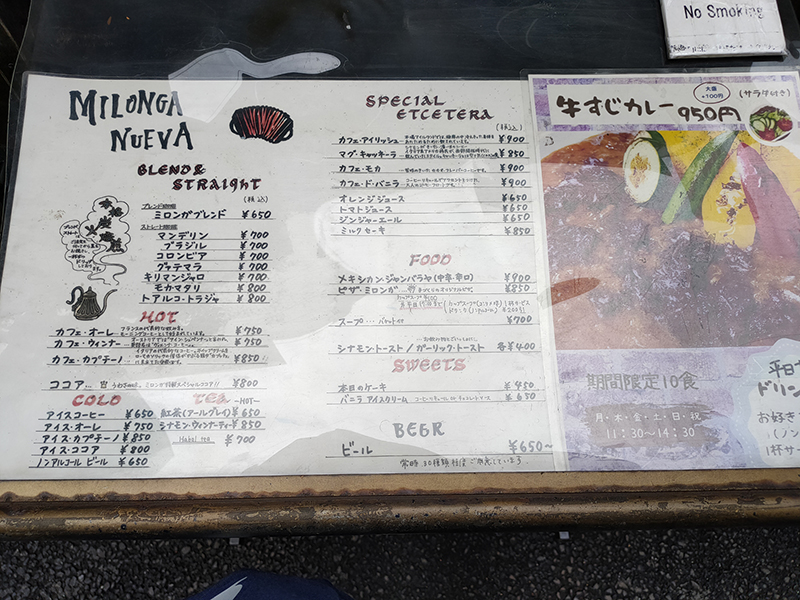 No Smoking
MILONGA
NUEVA
BLEND &
STRAIGHT
(税込)
ブレンド珈琲
ミロンガブレンド ¥650
ストレート珈琲
マンデリン ¥700
ブラジル ¥700
コロンビア ¥700
グァテマラ ¥700
キリマンジャロ ¥700
モカマタリ ¥800
トアルコ・トラジャ ¥800
HOT
カフェ・オーレ ¥750
カフェ・ウィンナー ¥750
カフェ・カプチーノ ¥850
ココア ¥800
COLD
アイスコーヒー ¥650
アイス・オーレ ¥750
アイス・カプチーノ ¥850
アイス・ココア ¥800
ノンアルコール ビール ¥650
TEA
-HOT-
紅茶(アールグレイ) ¥650
シナモン・ウィンナーティー ¥850
Herbal tea ¥700
SPECIAL
ETCETERA
(税込)
カフェ・アイリッシュ ¥900
マグ・キャッキーラ ¥850
カフェ・モカ ¥900
カフェ・ド・バニラ ¥900
オレンジジュース ¥650
トマトジュース ¥650
ジンジャーエール ¥650
ミルクセーキ ¥850
FOOD
メキシカンジャンバラヤ(中辛・辛口) ¥900
ピザ・ミロンガ ¥850
スープ… バケット付 ¥700
シナモントースト / ガーリック・トースト 各¥400
SWEETS
本日のケーキ ¥950
バニラ アイスクリーム ¥650
BEER
ビール ¥650~
常時 30種類程度ご用意しています
牛すじカレー 950円
大盛
+100円
(サラダ付き)
期間限定10食
月・木・金・土・日・祝
11:30~14:30
平日
ドリン
お好き
(ノン
1杯サー